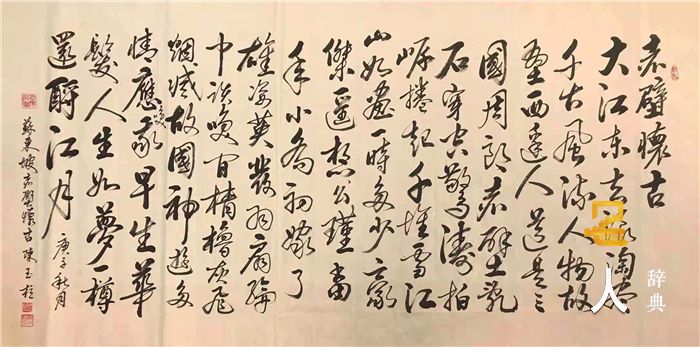 赤壁懷古
大江東去浪淘盡
千古風流人物故
壘西邊人道是三
國周郎赤壁亂
石穿空驚濤拍
岸捲起千堆雪江
山如畫一時多少豪
傑遙想公瑾當
年小喬初嫁了
雄姿英發羽扇綸
巾談笑間檣櫓灰飛
煙滅故國神遊多
情應笑我早生華
髮人生如夢一樽
還酹江月
庚子秋月
蘇東坡赤壁懷古陳玉
人
辞典